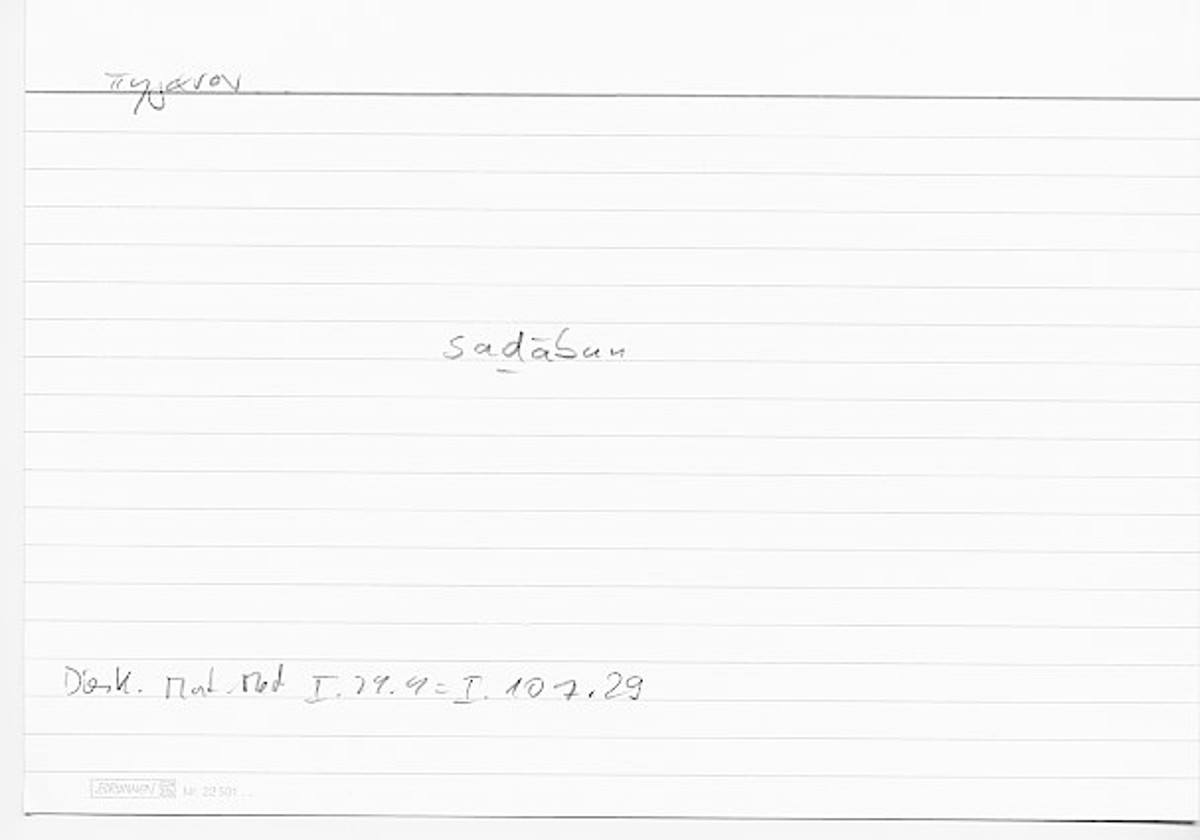 πηγανον
saḏābun
Diosk. Mat. Med I. 29.9 = I. 107.29
BRUNNEN Nr. 22501